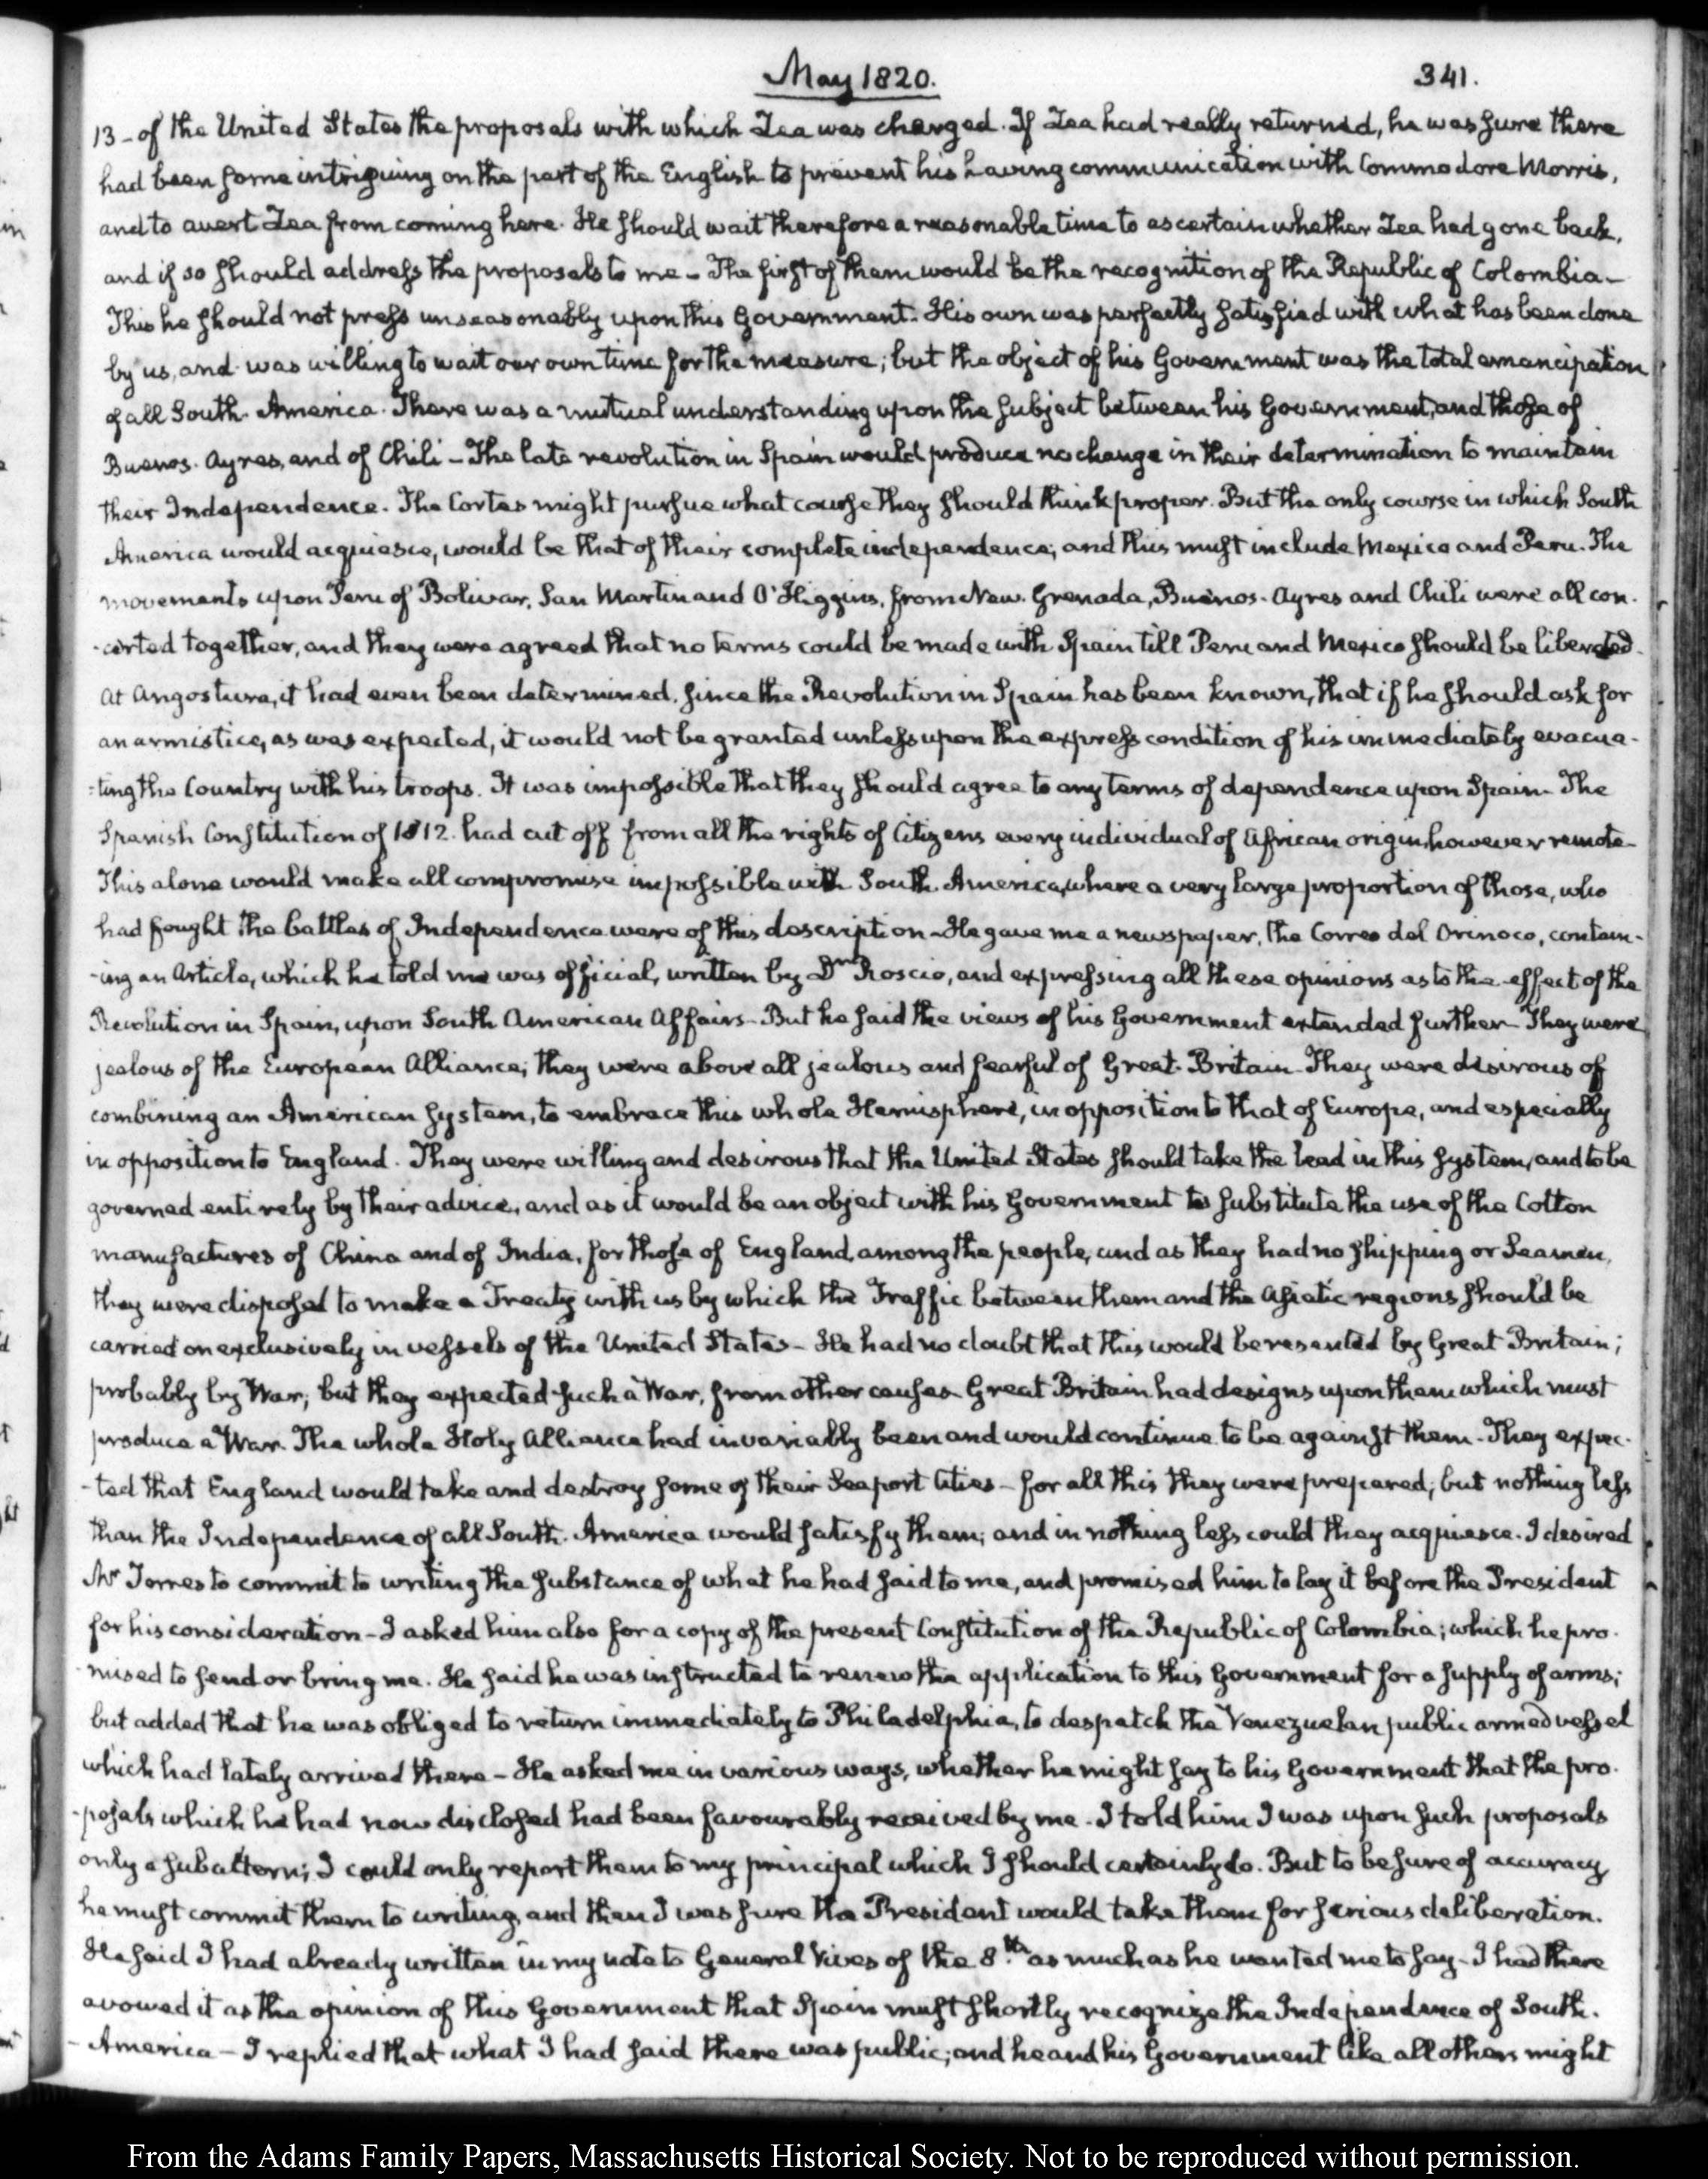 May 1820.
341.
13 - of the United States the proposals with which Zea was charged. If Zea had really returned, he was sure there
had been some intriguing on the part of the English to prevent his having communication with Commodore Morris,
and to avert Zea from coming here. He should wait therefore a reasonable time to ascertain whether Zea had gone back,
and if so should address the proposals to me - The first of them would be the recognition of the Republic of Colombia -
This he should not press unseasonably upon this Government. His own was perfectly satisfied with what has been done
by us, and was willing to wait our own time for the measure; but the object of his Government was the total emancipation
of all South-America. There was a mutual understanding upon the subject between his Government, and those of
Buenos-Ayres, and of Chili - The late revolution in Spain would produce no change in their determination to maintain
their Independence. The Cortes might pursue what course they should think proper. But the only course in which South
America would acquiesce, would be that of their complete independence; and this must include Mexico and Peru. The
movements upon Peru of Bolivar, San Martin and O'Higgins, from New-Grenada, Buenos-Ayres and Chili were all con-
-certed together, and they were agreed that no terms could be made with Spain till Peru and Mexico should be liberated.
At Angostura, it had even been determined, since the Revolution in Spain has been known, that if he should ask for
an armistice, as was expected, it would not be granted unless upon the express condition of his immediately evacua-
-ting the Country with his troops. It was impossible that they should agree to any terms of dependence upon Spain - The
Spanish Constitution of 1812. had cut off from all the rights of Citizens every individual of African origin, however remote -
This alone would make all compromise impossible with South-America, where a very large proportion of those, who
had fought the battles of Independence were of this description - He gave me a newspaper, the Correo del Orinoco, contain-
-ing an Article, which he told me was official, written by Dr Roscio, and expressing all these opinions as to the effect of the
Revolution in Spain, upon South American Affairs - But he said the views of his Government extended further - They were
jealous of the European Alliance; they were above all jealous and fearful of Great-Britain - They were desirous of
combining an American system, to embrace this whole Hemisphere, in opposition to that of Europe, and especially
in opposition to England. They were willing and desirous that the United States should take the lead in this system, and to be
governed entirely by their advice, and as it would be an object with his Government to substitute the use of the Cotton
manufactures of China and of India, for those of England, among the people, and as they had no shipping or Seamen,
they were disposed to make a Treaty with us by which the Traffic between them and the Asiatic regions should be
carried on exclusively in vessels of the United States - He had no doubt that this would be resented by Great Britain;
probably by War; but they expected such a War, from other causes - Great Britain had designs upon them which must
produce a War. The whole Holy Alliance had invariably been and would continue to be against them - They expec-
-ted that England would take and destroy some of their Seaport Cities - for all this they were prepared; but nothing less
than the Independence of all South-America would satisfy them; and in nothing less could they acquiesce. I desired
Mr Torres to commit to writing the substance of what he had said to me, and promised him to lay it before the President
for his consideration - I asked him also for a copy of the present Constitution of the Republic of Colombia; which he pro-
-mised to send or bring me. He said he was instructed to renew the application to this Government for a supply of arms;
but added that he was obliged to return immediately to Philadelphia, to despatch the Venezuelan public armed vessel
which had lately arrived there - He asked me in various ways, whether he might say to his Government that the pro-
-posals which he had now disclosed had been favourably received by me. I told him I was upon such proposals
only a subaltern; I could only report them to my principal which I should certainly do. But to be sure of accuracy
he must commit them to writing, and then I was sure the President would take them for serious deliberation.
He said I had already written in my note to General Vives of the 8th. as much as he wanted me to say - I had there
avowed it as the opinion of this Government that Spain must shortly recognize the Independence of South-
-America - I replied that what I had said there was public; and he and his Government like all others might
From the Adams Family Papers, Massachusetts Historical Society. Not to be reproduced without permission.